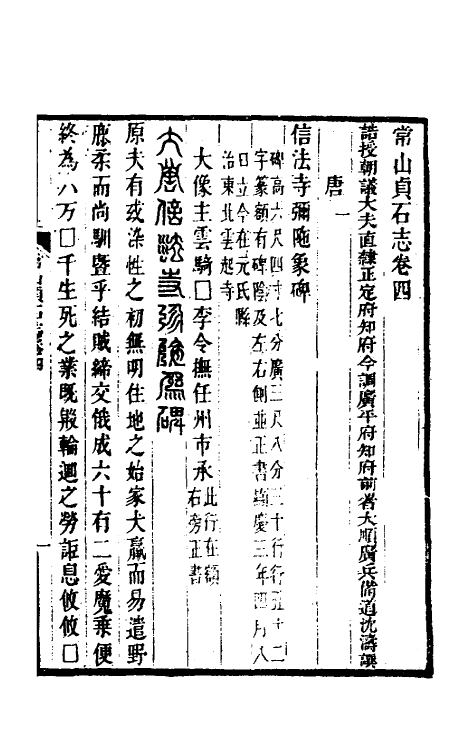 常山貞石志卷四
誥授朝議大夫直隸正定府知府今調廣平府知府前署大順廣兵備道沈濤譔
唐一
信法寺彌陁象碑
碑高六尺四寸七分廣三尺八分三十行行五十二
字篆額有碑陰及左右側並正書顯慶三年四月八
日立今在元氏縣
治東北雲起寺
大像主雲騎□李令撫任州市承此行在額
右旁正書
大唐信法寺彌陁象碑
原夫有或染性之初無明住地之始家犬羸而易遣野
鹿柔而尚馴曁乎結賊締交俄成六十有二愛魔乗便
終為八万□千生死之業旣嚴輪迴之勞詎息攸攸□
常山貞石志卷四
一